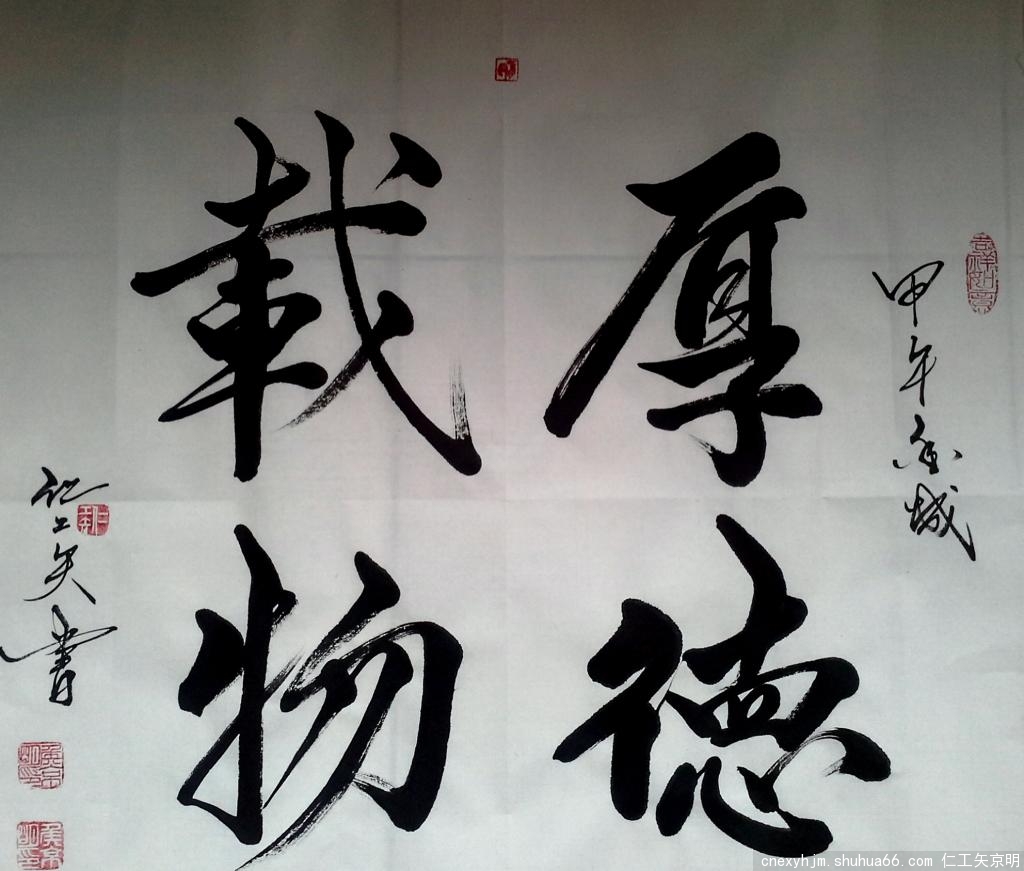 厚德
载物
甲午金城
仁工矢書
吉祥如意
cnexyhjm.shuhua66.com 仁工矢京明